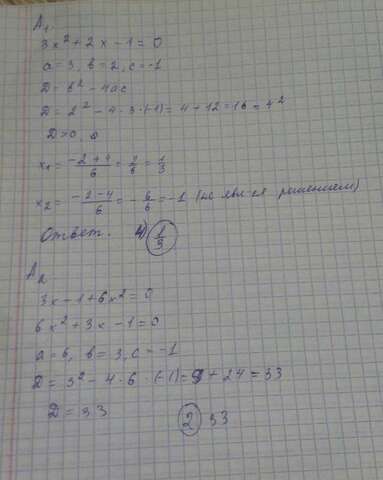 A₁
3x² + 2x - 1 = 0
a = 3, b = 2, c = -1
D = b² - 4ac
D = 2² - 4 · 3 · (-1) = 4 + 12 = 16 = 4²
D > 0,
x₁ = (-2+4)/6 = 2/6 = 1/3
x₂ = (-2-4)/6 = -6/6 = -1 (не явл-ся решением)
Ответ. 4) 1/3
A₂
3x - 1 + 6x² = 0
6x² + 3x - 1 = 0
a = 6, b = 3, c = -1
D = 3² - 4 · 6 · (-1) = 9 + 24 = 33
D = 33
2) 33